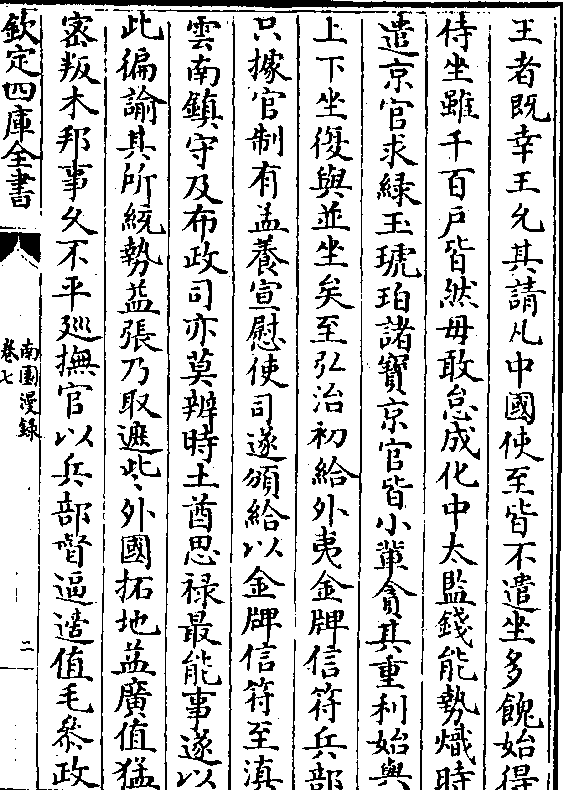 王者既幸王允其請凡中國使至皆不遣坐多餽始得
侍坐雖千百戶皆然毋敢怠成化中太監錢能勢熾時
遣京官求緑玉琥珀諸寶京官皆小輩貪其重利始與
上下坐復與並坐矣至弘治初給外夷金牌信符兵部
只據官制有孟養宣慰使司遂頒給以金牌信符至滇
雲南鎮守及布政司亦莫辨時土酋思禄最能事遂以
此徧諭其所統勢益張乃取遮些外國拓地益廣值猛
密叛木邦事久不平廵撫官以兵部督逼遑值毛叅政
欽定四庫全書
南園漫録
卷七
二